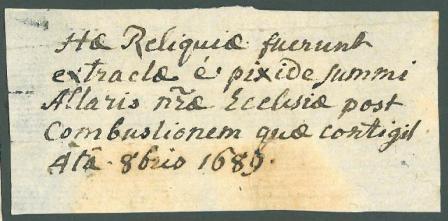 Hæ Reliquiæ fuerunt
extractæ é pixide summi
Altaris nr̃æ Ecclesiæ post
Combustionem quæ contigit
4tâ. 8bris 1689.